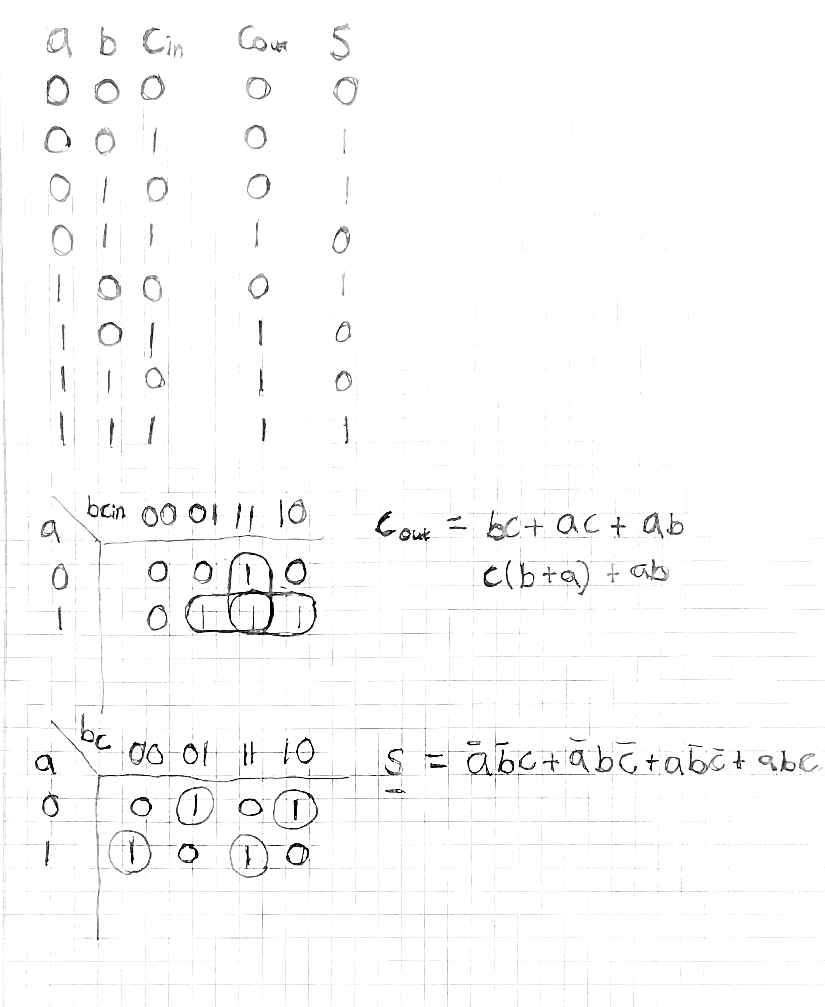 a b Cin Cout S
0 0 0 0 0
0 0 1 0 1
0 1 0 0 1
0 1 1 1 0
1 0 0 0 1
1 0 1 1 0
1 1 0 1 0
1 1 1 1 1
a bcin 00 01 11 10
0 0 0 1 0
1 0 1 1 1
Cout = bc + ac + ab
c(b+a) + ab
a bc 00 01 11 10
0 0 1 0 1
1 1 0 1 0
S = a̅b̅c + a̅bc̅ + ab̅c̅ + abc